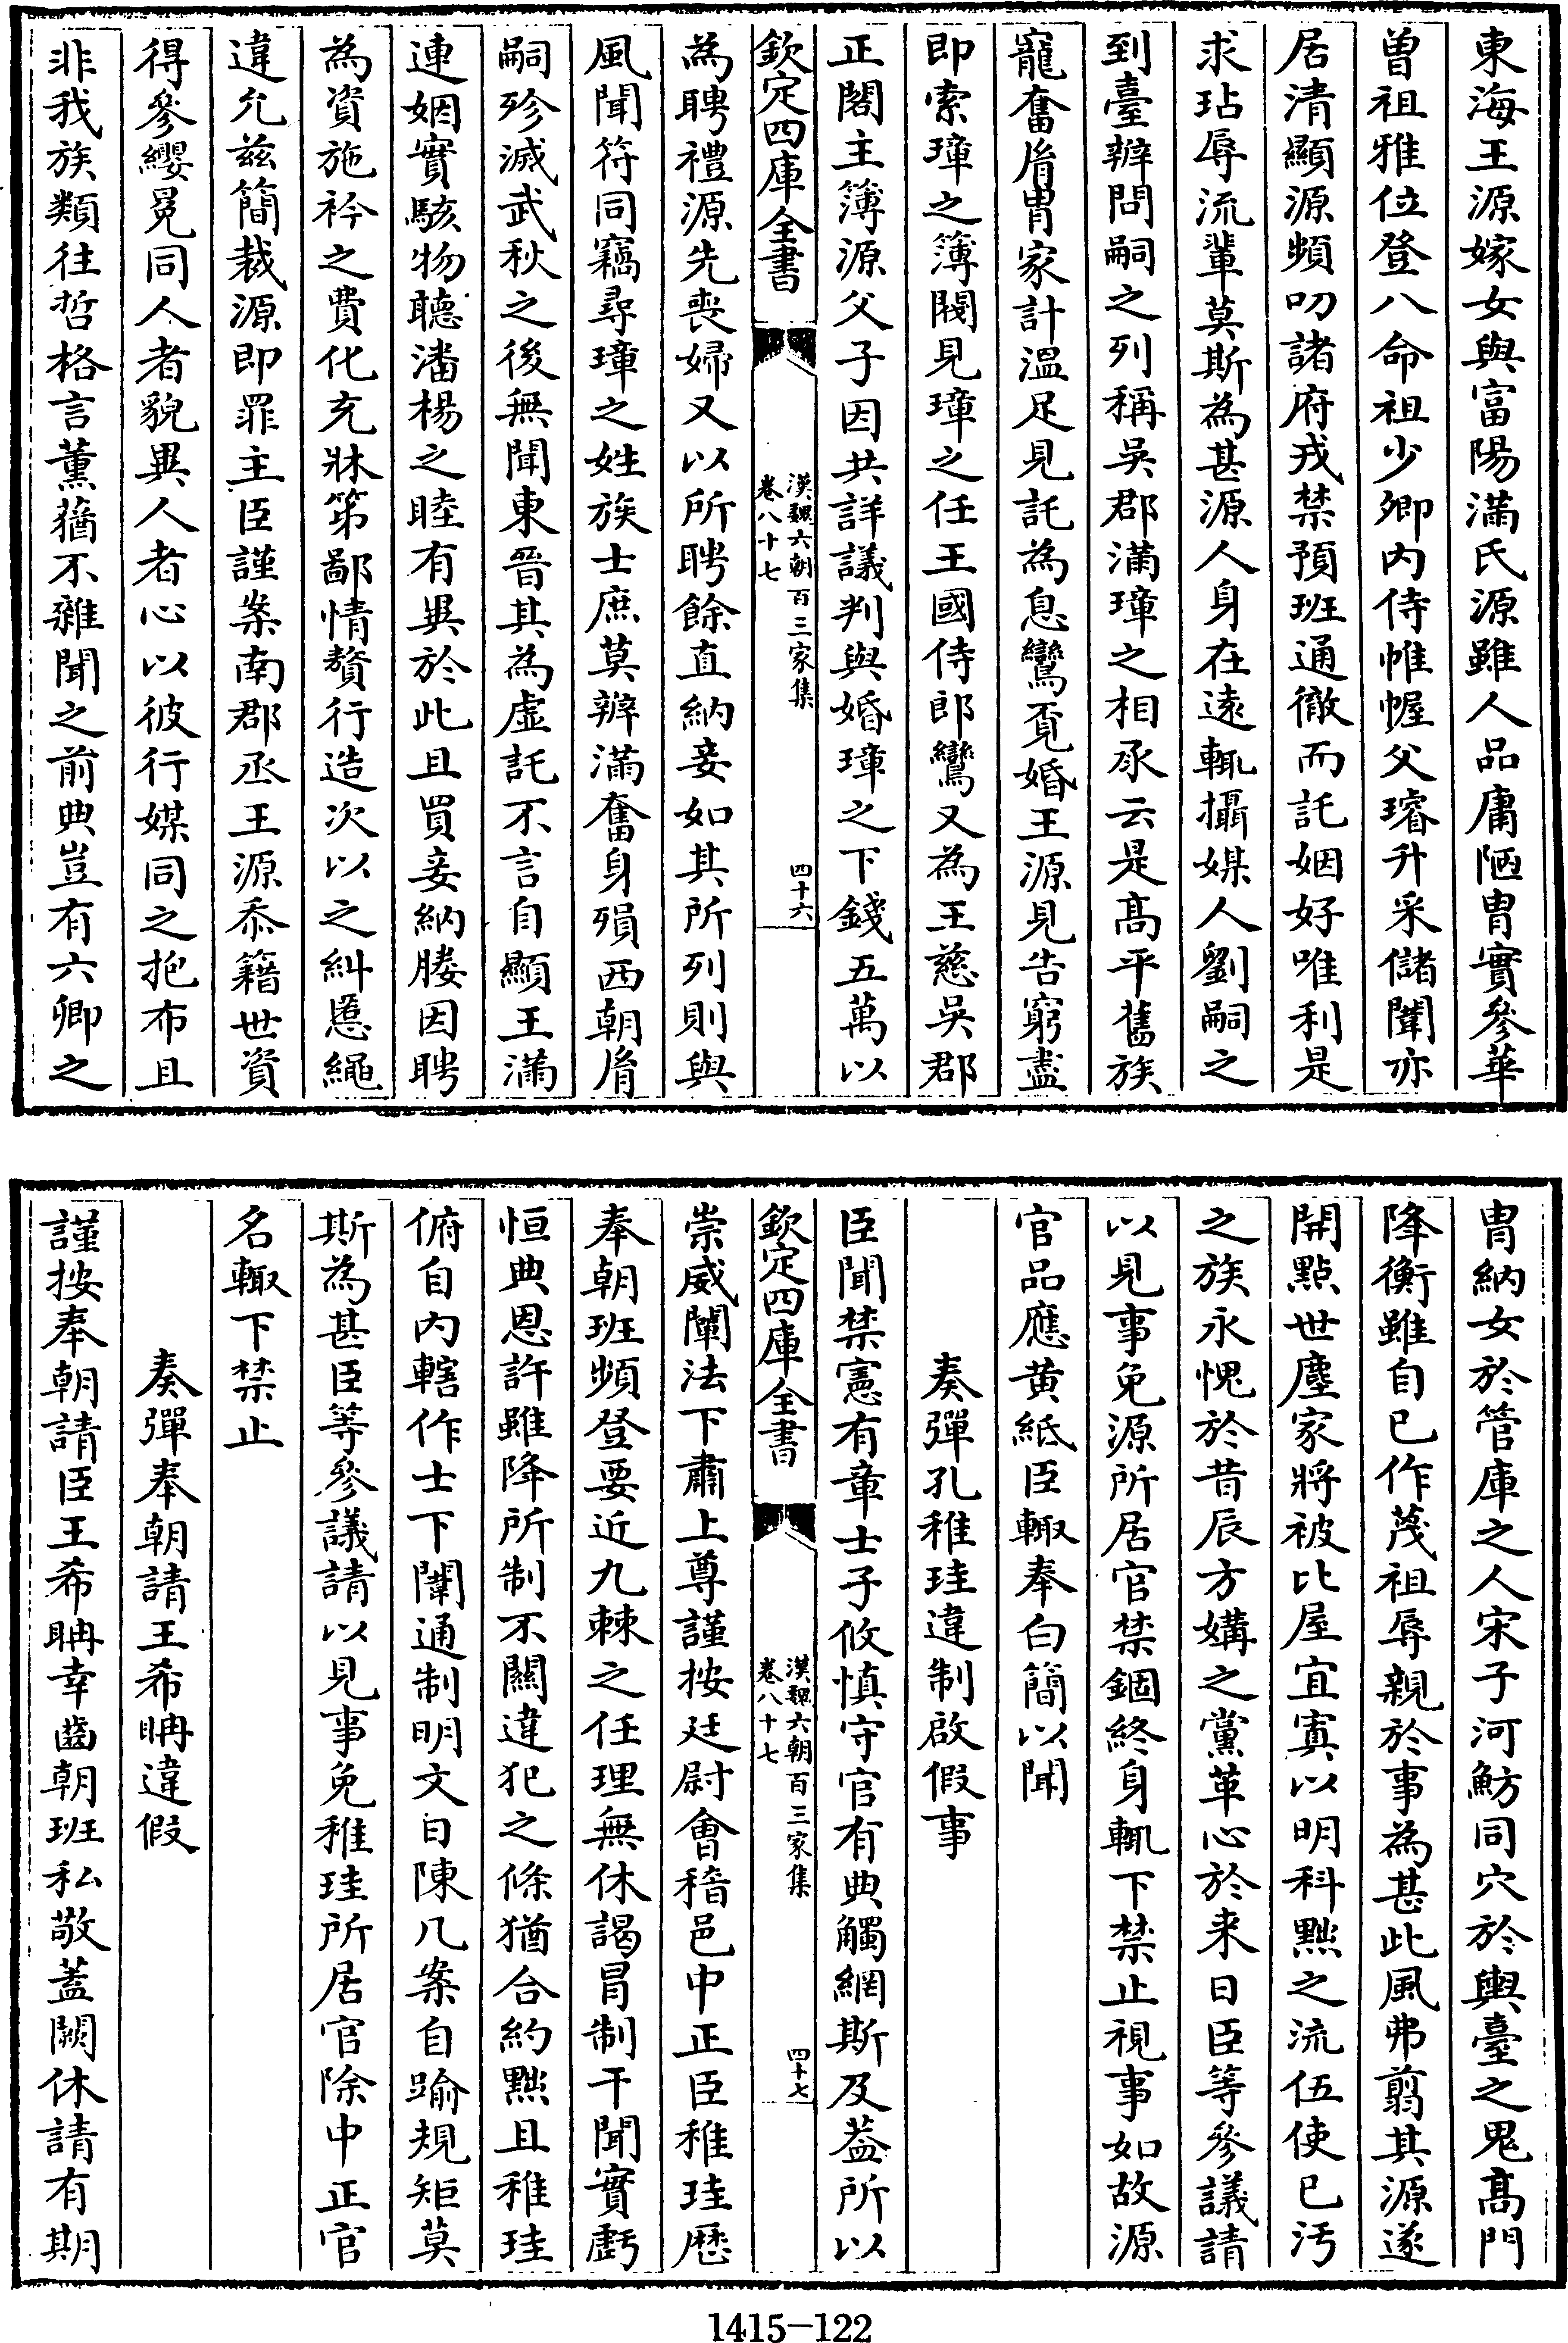 東海王源嫁女與富陽滿氏源雖人品庸陋胄實參華
曾祖雅位登八命祖少卿内侍帷幄父璿升采儲闈亦
居清顯源頻叨諸府戎禁預班通徹而託姻好唯利是
求玷辱流輩莫斯為甚源人身在遠輒攝媒人劉嗣之
到臺辨問嗣之列稱吳郡滿璋之相承云是高平舊族
寵奮胤胄家計溫足見託為息鸞覔婚王源見告窮盡
即索璋之簿閥見璋之任王國侍郎鸞又為王慈吳郡
正閣主簿源父子因共詳議判與婚璋之下錢五萬以
欽定四庫全書
漢魏六朝百三家集
卷八十七
四十六
為聘禮源先喪婦又以所聘餘直納妾如其所列則與
風聞符同竊尋璋之姓族士庶莫辨滿奮身殞西朝胤
嗣殄滅武秋之後無聞東晉其為虛託不言自顯王滿
連姻實駭物聽潘楊之睦有異於此且買妾納媵因聘
為資施衿之費化充牀笫鄙情贅行造次以之糾慝繩
違允兹簡裁源即罪主臣謹案南郡丞王源忝籍世資
得參纓冕同人者貌異人者心以彼行媒同之抱布且
非我族類往哲格言薰蕕不雜聞之前典豈有六卿之
胄納女於管庫之人宋子河魴同穴於輿臺之鬼高門
降衡雖自已作蔑祖辱親於事為甚此風弗翦其源遂
開點世塵家將被比屋宜寘以明科黜之流伍使已汚
之族永愧於昔辰方媾之黨革心於来日臣等參議請
以見事免源所居官禁錮終身輒下禁止視事如故源
官品應黄紙臣輙奉白簡以聞
奏彈孔稚珪違制啟假事
臣聞禁憲有章士子攸慎守官有典觸網斯及葢所以
欽定四庫全書
漢魏六朝百三家集
卷八十七
四十七
崇威闡法下肅上尊謹按廷尉會稽邑中正臣稚珪歷
奉朝班頻登要近九棘之任理無休謁冒制干聞實虧
恒典恩許雖降所制不關違犯之條猶合約黜且稚珪
俯自内轄作士下闈通制明文日陳几案自踰規矩莫
斯為甚臣等參議請以見事免稚珪所居官除中正官
名輙下禁止
奏彈奉朝請王希聃違假
謹按奉朝請臣王希聃幸齒朝班私敬蓋闕休請有期
1415-122